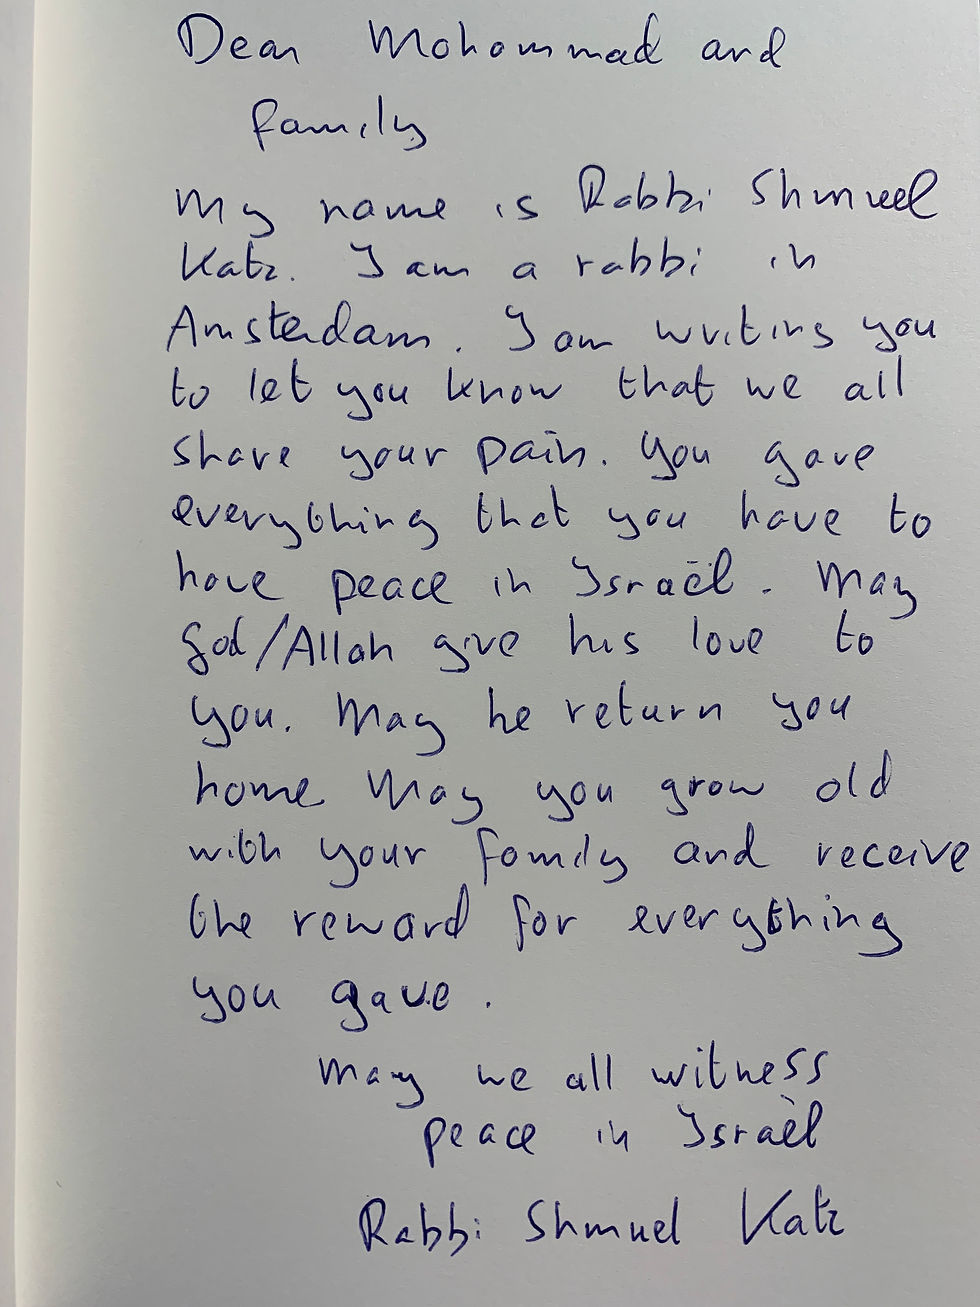 Dear Mohommad and
family
My name is Rabbi Shmuel
Katz. I am a rabbi in
Amsterdam. I am writing you
to let you know that we all
share your pain. You gave
everything that you have to
have peace in Israël. May
God/Allah give his love to
you. May he return you
home May you grow old
with your family and receive
the reward for everything
you gave.
May we all witness
peace in Israël
Rabbi Shmuel Katz